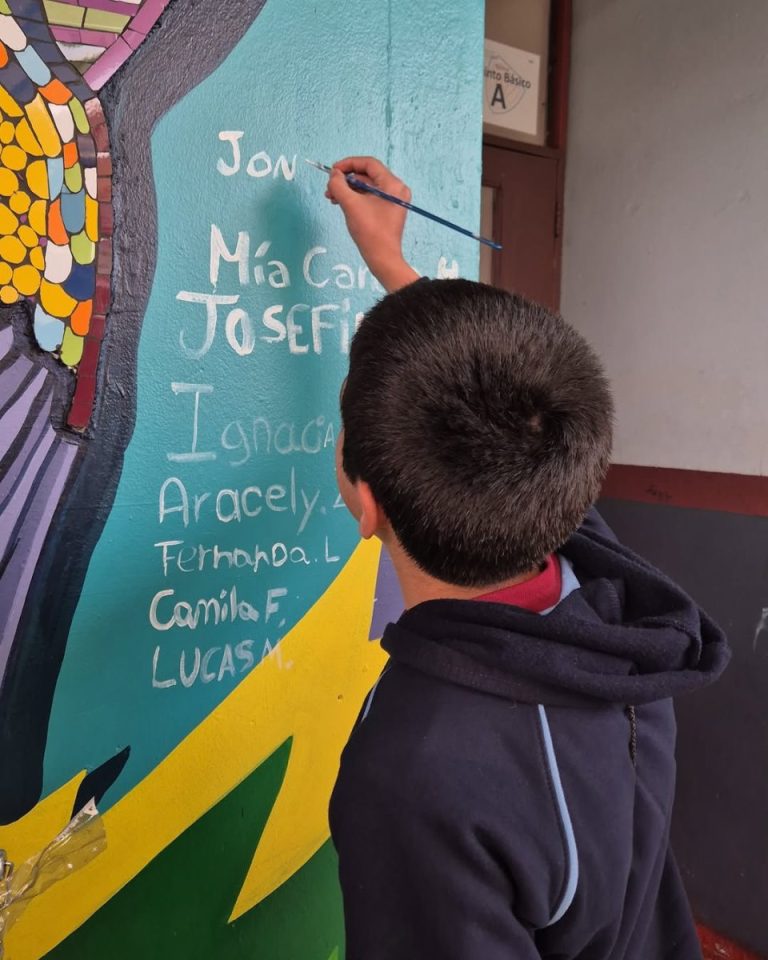 into Básico
A
JON
Mía Cam H
JOSEFI
Ignacia
Aracely.
Fernanda. L
Camila F.
LUCAS M.